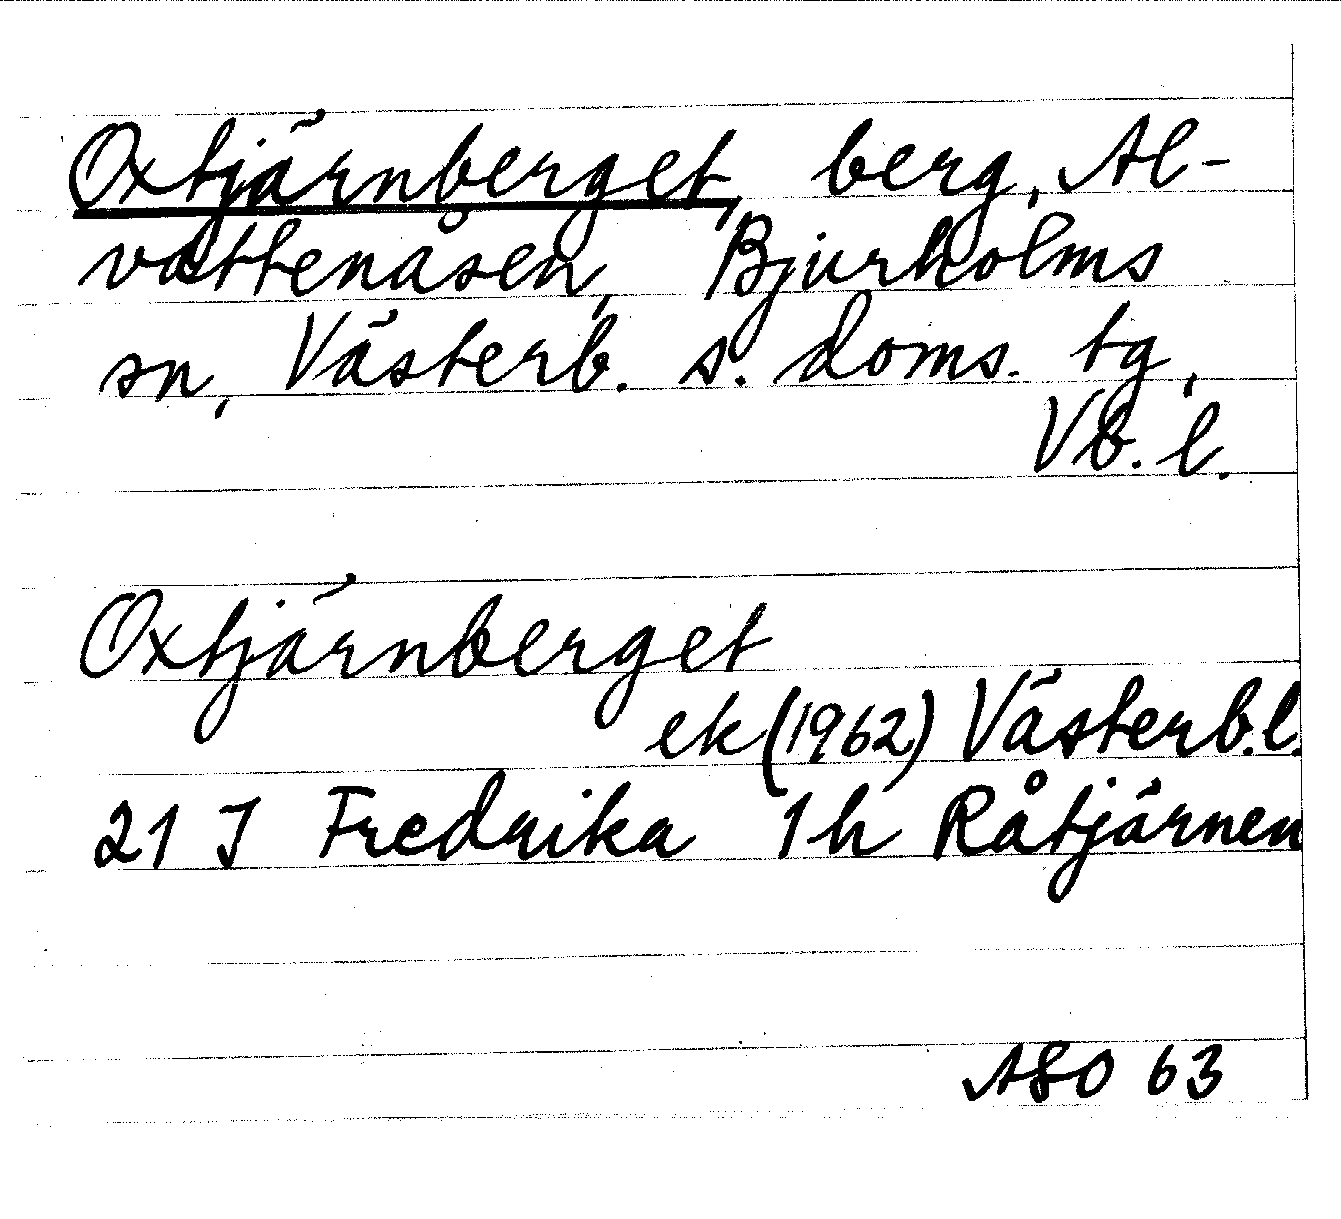 Oxtjärnberget, berg, Al-
vattenåsen, Bjurholms
sn, Västerb. s. doms. tg,
Vb. l.
Oxtjärnberget
ek (1962) Västerb. l.
21 J Fredrika 1 h Råtjärnen
ASO 63